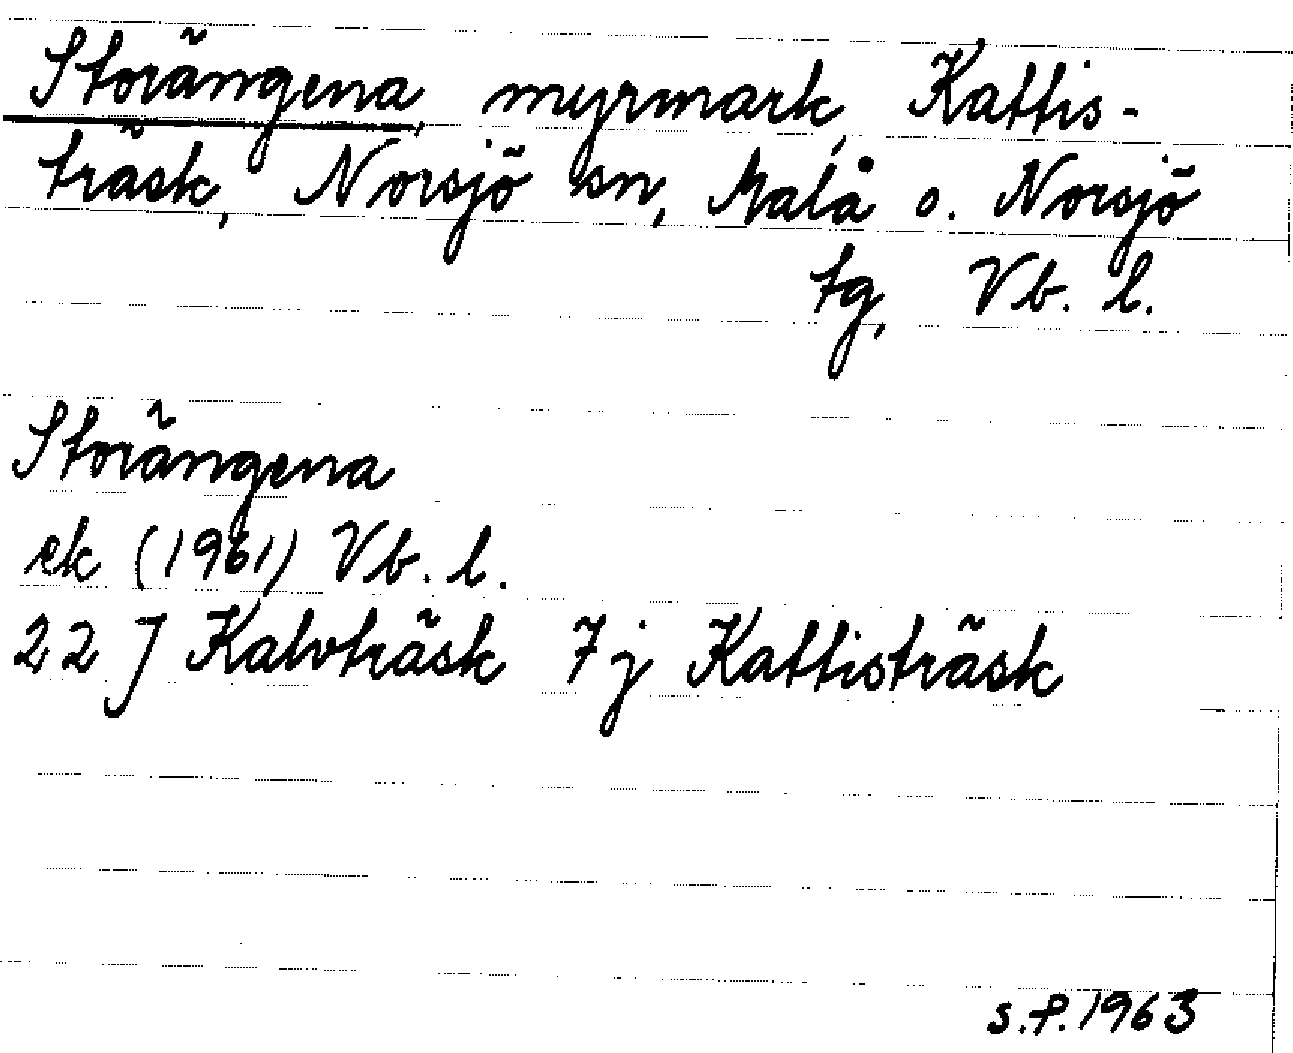 Storängena, myrmark, Kattis-
träsk, Norsjö sn, Malå o. Norsjö
tg, Vb. l.
Storängena
ek (1961) Vb. l.
22 J Kalvträsk 7 j Kattisträsk
s.f. 1963